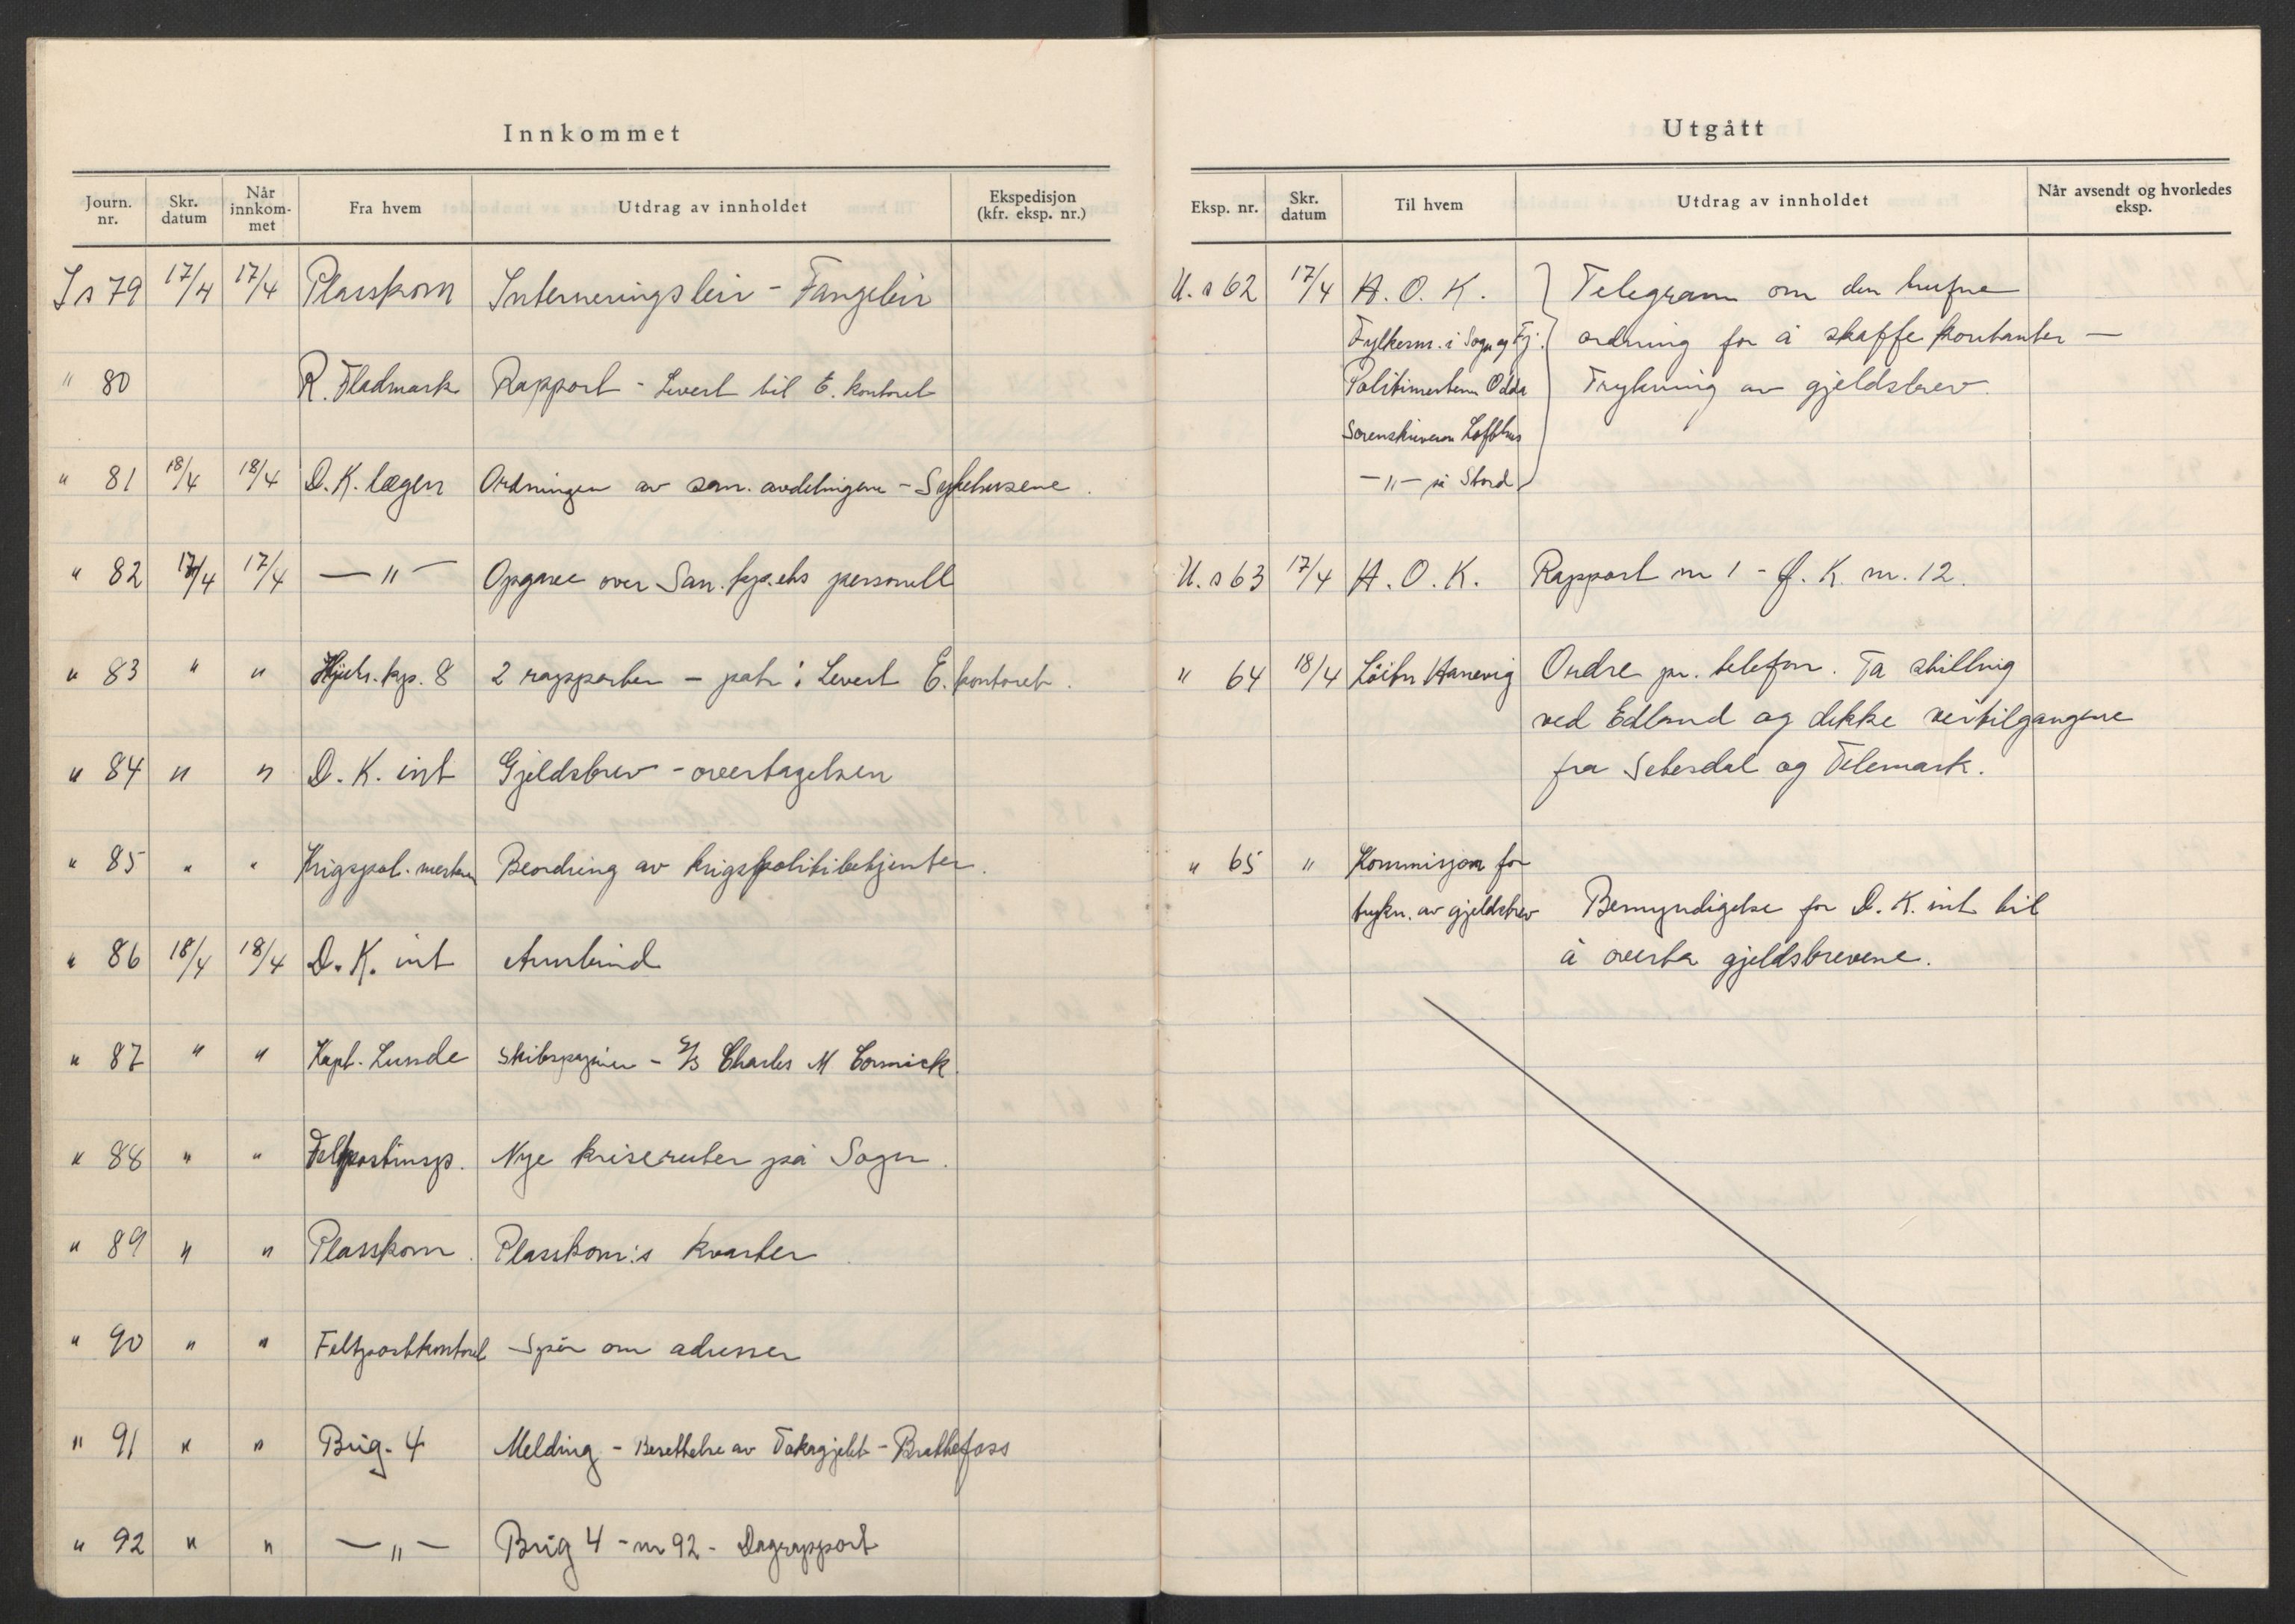 Innkommet
Journ. nr. Skr. datum Når innkom-met Fra hvem Utdrag av innholdet Ekspedisjon (kfr. eksp. nr.)
Is 79 17/4 17/4 Plasskom Interneringsleir - Fangeleir
" 80 R. Fladmark Rapport - Levert til E. kontoret
" 81 18/4 18/4 D.K. lægen Ordningen av san. avdelingene - Sykehusene.
" 82 17/4 17/4 — " — Opgave over San. kp. ets personell
" 83 " " Hjul. kp. 8 2 rapporter - patr: Levert E. kontoret.
" 84 " " D.K. int Gjeldsbrev - overtagelsen
" 85 " " Krigspol. mesteren Beordring av krigspolitibetjenter.
" 86 18/4 18/4 D.K. int Armbind
" 87 " " Kapt. Lunde Skibspapirer - S/S Charles M Cormick.
" 88 " " Feltpostinsp. Nye kriseruter på Sogn.
" 89 " " Plasskom. Plasskom:s kvarter
" 90 " " Feltpostkontoret Spør om adresser
" 91 " " Brig. 4 Melding - Besettelse av Tokagjelet - Brattefoss
" 92 " " — " — Brig 4 - nr 92 - Dagrapport
Utgått
Eksp. nr. Skr. datum Til hvem Utdrag av innholdet Når avsendt og hvorledes eksp.
U. s 62 17/4 H.O.K. Telegram om den trufne
Fylkesm. i Sogn og Fj. ordning for å skaffe kontanter —
Politimesteren Odda Trykning av gjeldsbrev.
Sorenskriveren Lofthus
— " — på Stord
U. s 63 17/4 H.O.K. Rapport nr 1 - D.K. nr. 12.
" 64 18/4 Löitn Hanevig Ordre pr. telefon. Ta stilling
ved Edland og dekke veitilgangene
fra Setesdal og Telemark.
" 65 " Kommisjon for
trykn. av gjeldsbrev Bemyndigelse for D.K. int til
å overta gjeldsbrevene.